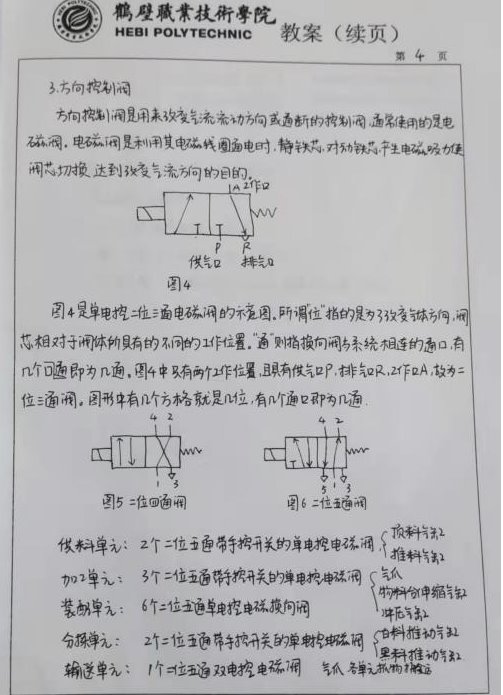 鹤壁職業技術學院
HEBI POLYTECHNIC
教案（续页）
第 4 页
3.方向控制阀
方向控制阀是用来改变气流流动方向或通断的控制阀,通常使用的是电
磁阀。电磁阀是利用其电磁线圈通电时,静铁芯对动铁芯产生电磁吸力使
阀芯切换,达到改变气流方向的目的。
A 工作口
P R
供气口 排气口
图4
图4是单电控二位三通电磁阀的示意图。所谓"位"指的是为了改变气体方向,阀
芯相对于阀体所具有的不同的工作位置。"通"则指换向阀与系统相连的通口,有
几个口通即为几通。图4中只有两个工作位置,且具有供气口P,排气口R,工作口A,故为二
位三通阀。图形中有几个方格就是几位,有几个通口即为几通.
4 2
1 3
图5 二位四通阀
4 2
5 1 3
图6 二位五通阀
供料单元: 2个二位五通带手控开关的单电控电磁阀 顶料气缸
推料气缸
加工单元: 3个二位五通带手控开关的单电控电磁阀 气爪
物料台伸缩气缸
冲压气缸
装配单元: 6个二位五通单电控电磁换向阀
分拣单元: 2个二位五通带手控开关的单电控电磁阀 白料推动气缸
黑料推动气缸
输送单元: 1个二位五通双电控电磁阀 气爪 各单元抓物搬运